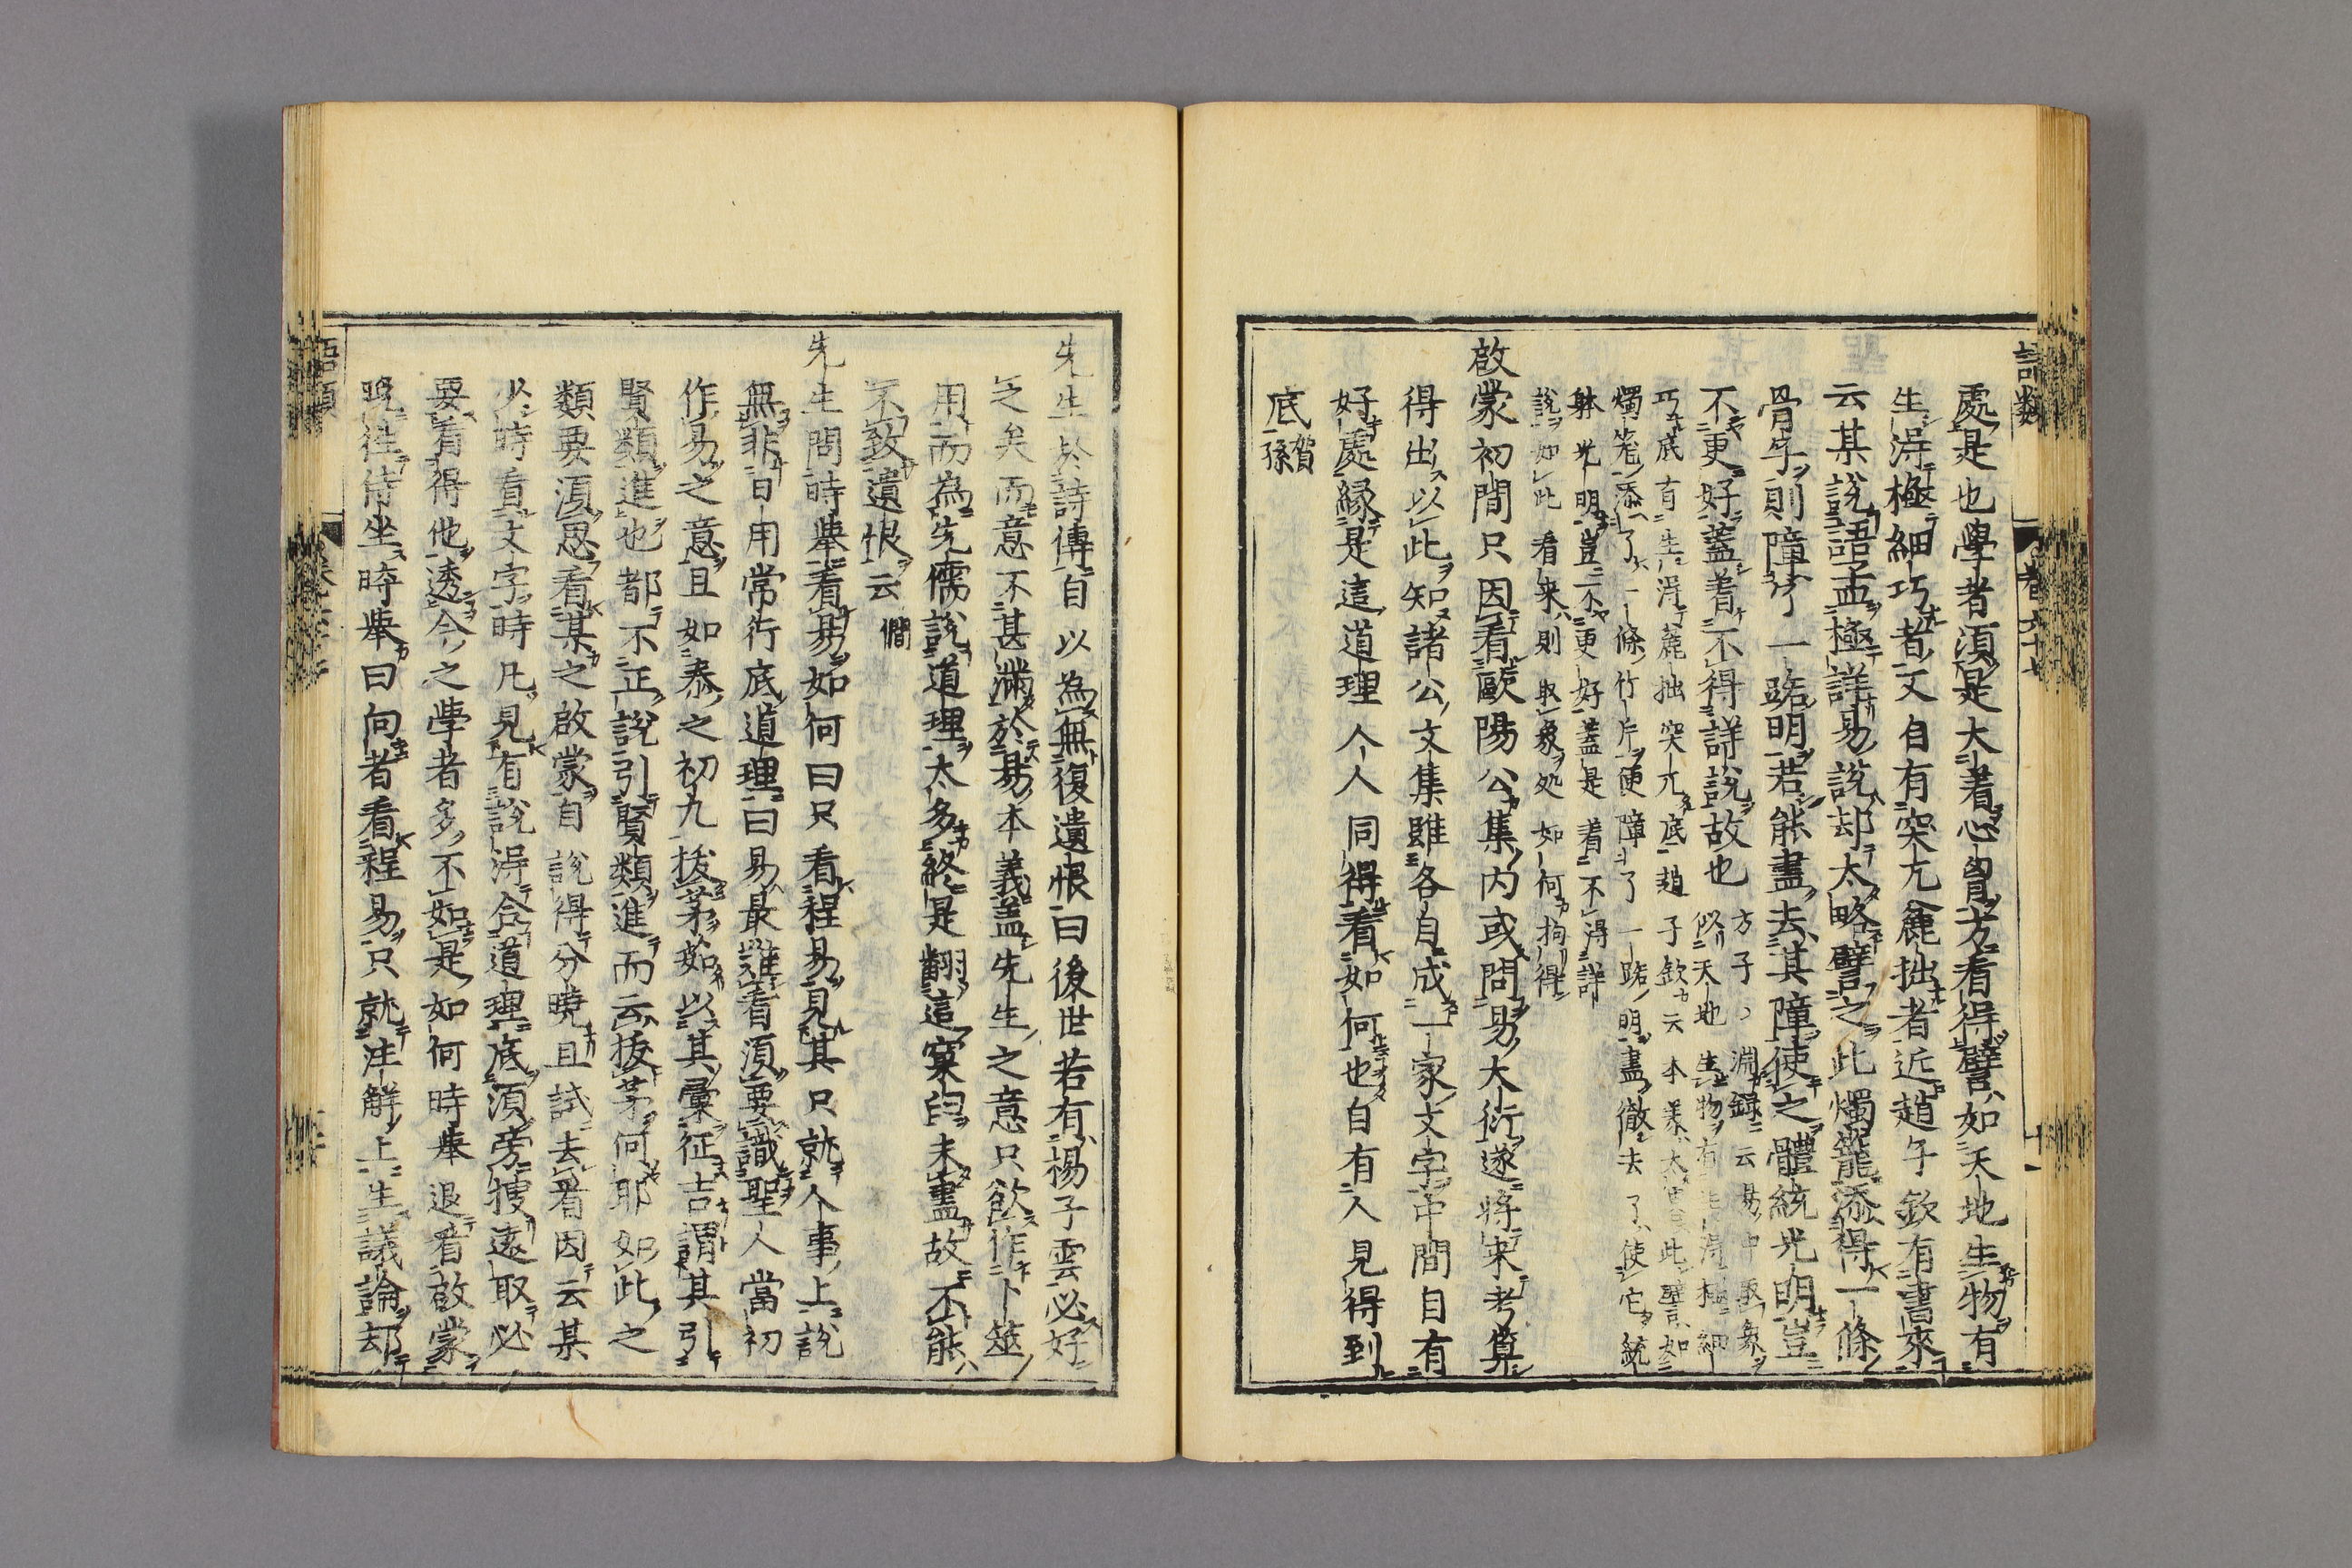 語類 卷六十七 十一
處是也學者須是大著心胷方看得譬如天地生物有
生得極細巧者又自有突兀麄拙者近趙子欽有書來
云某說語孟極詳易說却太略譬之此燭籠添得一條
骨子則障了一路明若能盡去其障使之體統光明豈
不更好蓋著不得詳說故也方子〇淵録云易中取象
似天地生物有生得極細
巧底有生得麄拙突兀底趙子欽云本義太略此譬如
燭籠添了一條竹片便障了一路明盡徹去了使它統
躰光明豈不更好蓋是著不得詳
說如此看來則取象処如何拘得
啟蒙初間只因看歐陽公集內或問易大衍遂將來考算
得出以此知諸公文集雖各自成一家文字中間自有
好處緣是這道理人人同得看如何也自有人見得到
底賀孫
先生於詩傳自以為無復遺恨曰後世若有揚子雲必好
之矣而意不甚滿於易本義蓋先生之意只欲作卜筮
用而為先儒說道理太多終是翻這窠臼未盡故不能
不致遺恨云僩
先生問時舉看易如何曰只看程易見其只就人事上說
無非日用常行底道理曰易最難看須要識聖人當初
作易之意且如泰之初九拔茅茹以其彙征吉謂其引
賢類進也都不正說引賢類進而云拔茅何耶如此之
類要須思看某之啟蒙自說得分曉且試去看因云某
少時看文字時凡見有說得合道理底須旁搜遠取必
要看得他透今之學者多不如是如何時舉退看啟蒙
晚往侍坐時舉曰向者看程易只就注解上生議論却
語類